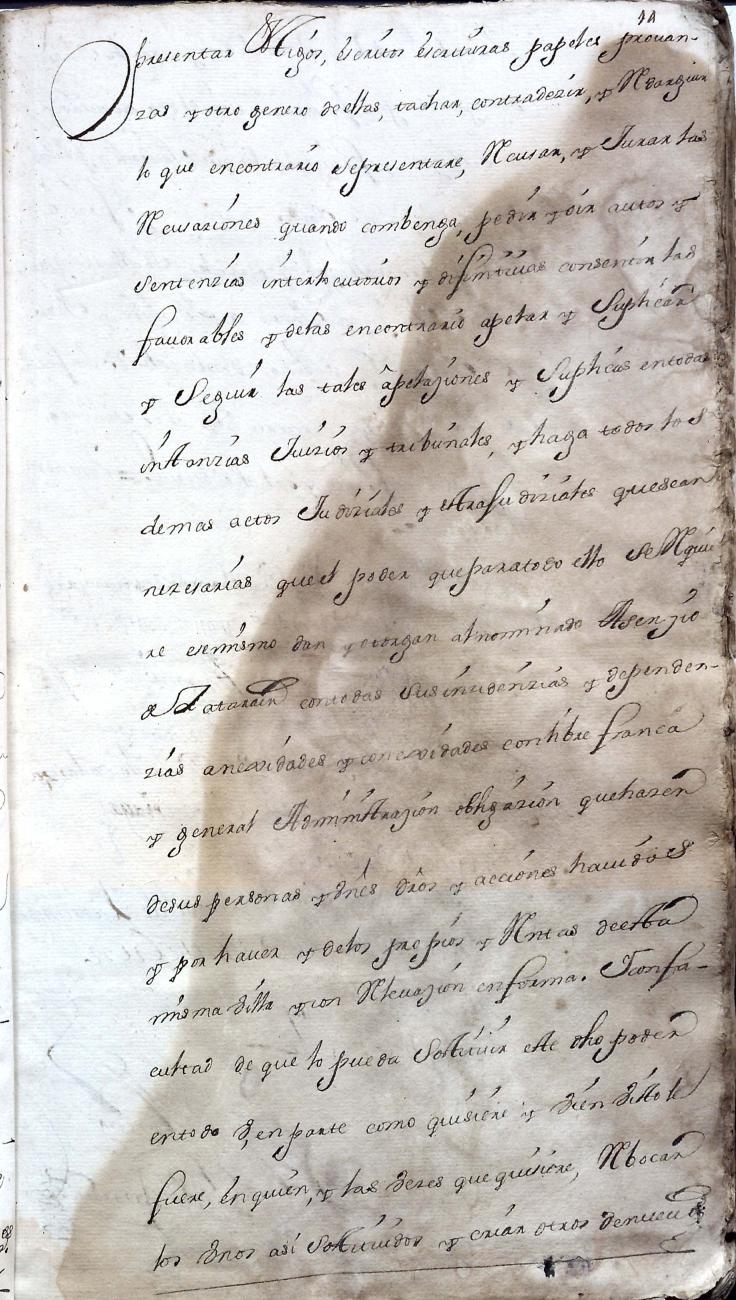 11
presentar Ttigos, escritos escrituras papeles provan-
zas y otro genero de ellas, tachar, contradezir, y Redarguir
lo que encontrario se presentare, Recusar, y Jurar las
Recusaziones quando combenga, pedir y oir autos y
sentenzias interlocutorios y difinitivas consentir las
favorables y delas encontrario apelar y Suplicar
y Seguir las tales apelaziones y Suplicas entodas
instanzias Juizios y tribunales, y haga todos los
demas actos Judiziales y extrajudiziales que sean
nezesarias que el poder que paratodo ello se Requie
re ese mismo dan y otorgan al nominado Asenzio
de Zatarain contodas sus inzidenzias y dependen-
zias anexidades y conexidades conlibre franca
y general Administrazion obligazion que hazen
desus personas y vnes dros y acciones havidos
y por haver y delos propios y Rentas de esta
misma villa y con Relevazion en forma. Y confa-
cultad de que lo pueda Sostituir este dho poder
entodo, v, en parte como quisiere y vien visto le
fuere, en quien, y las vezes que quisiere, Rebocar
los vnos asi Sostituidos y criar otros denuevo